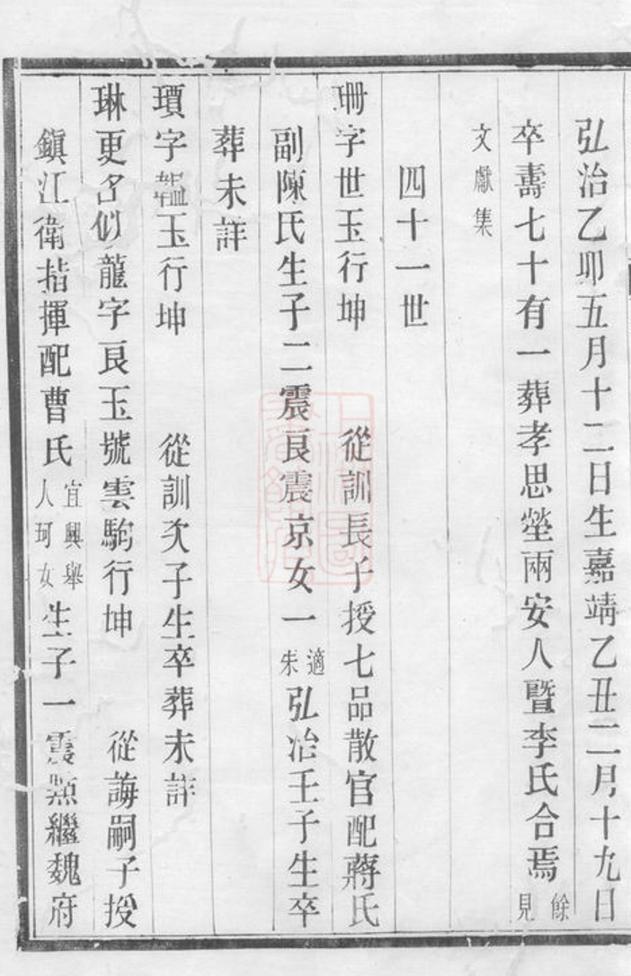 弘治乙卯五月十二日生嘉靖乙丑二月十九日
卒壽七十有一葬孝思塋兩安人暨李氏合焉餘見
文獻集
四十一世
珊字世玉行坤 從訓長子授七品散官配蔣氏
副陳氏生子二震艮震京女一適朱弘治壬子生卒
葬未詳
瓊字韞玉行坤 從訓次子生卒葬未詳
琳更名似龍字艮玉號雲駒行坤 從誨嗣子授
鎮江衛指揮配曹氏宜興舉人珂女生子一震點繼魏府